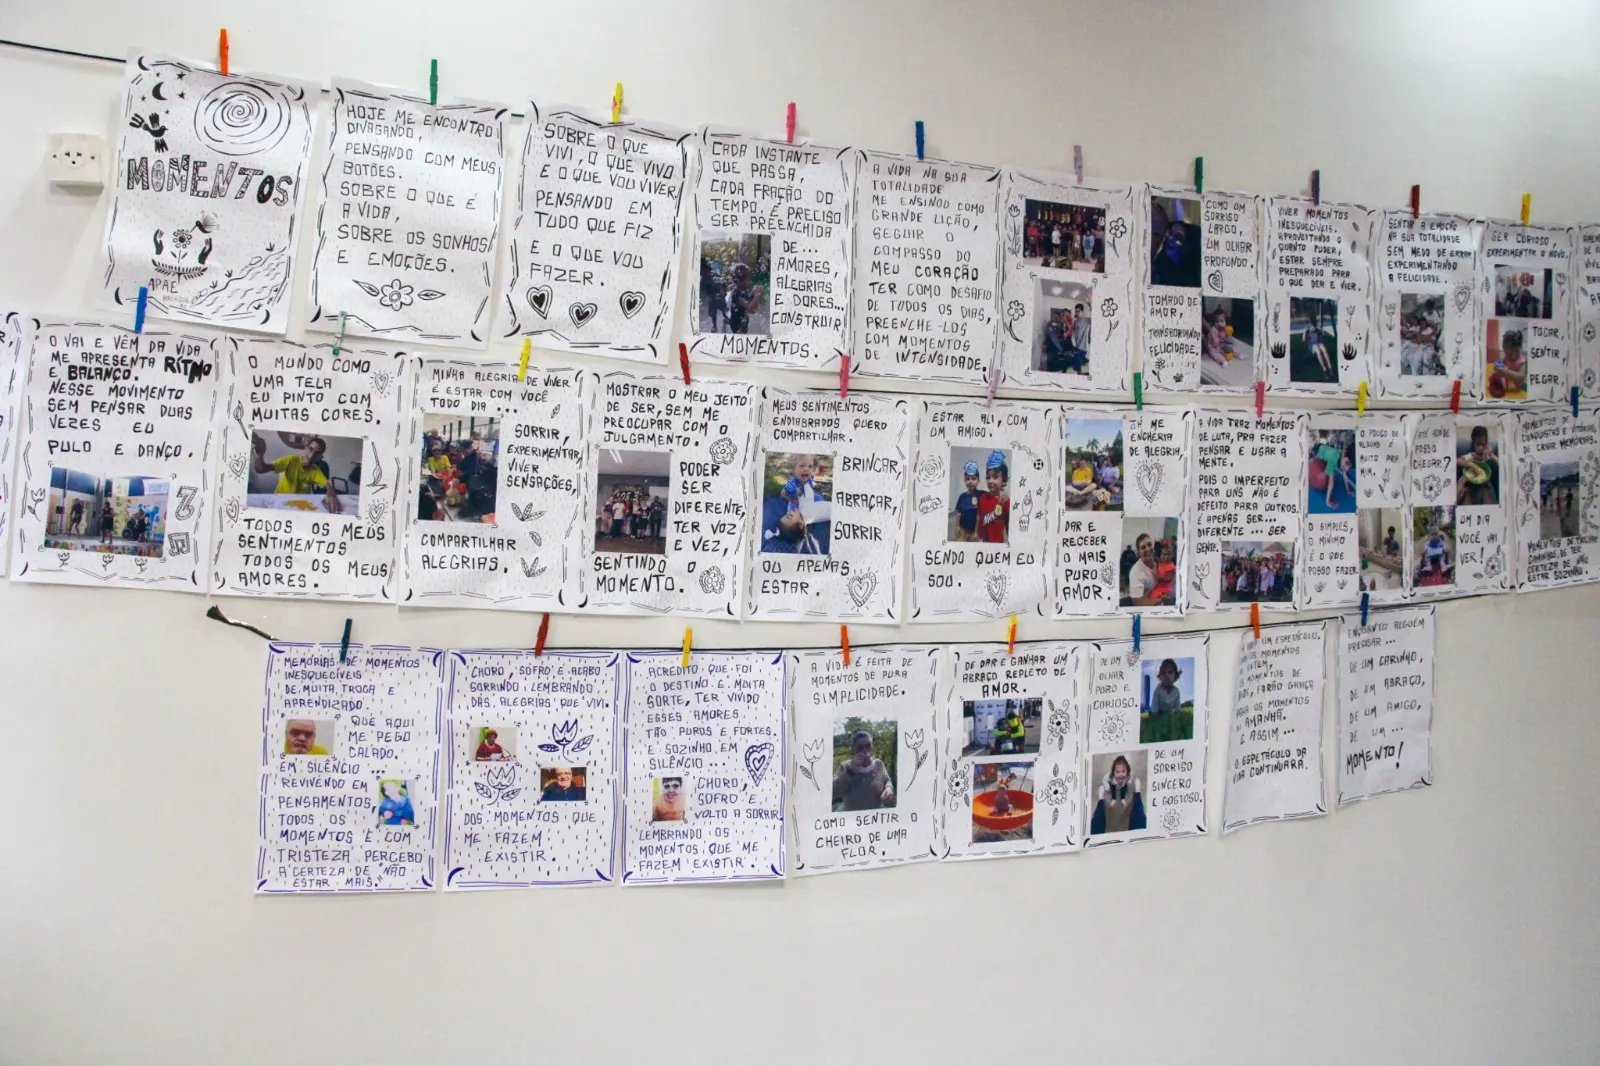 MOMENTOS
APAE
HOJE ME ENCONTRO
DIVAGANDO,
PENSANDO COM MEUS
BOTÕES.
SOBRE O QUE É
A VIDA,
SOBRE OS SONHOS
E EMOÇÕES.
SOBRE O QUE
VIVI, O QUE VIVO
E O QUE VOU VIVER,
PENSANDO EM
TUDO QUE FIZ
E O QUE VOU
FAZER.
CADA INSTANTE
QUE PASSA,
CADA FRAÇÃO DO
TEMPO, É PRECISO
SER PREENCHIDA
DE...
AMORES,
ALEGRIAS
E DORES...
CONSTRUIR
MOMENTOS.
A VIDA NA SUA
TOTALIDADE
ME ENSINOU COMO
GRANDE LIÇÃO,
SEGUIR O
COMPASSO DO
MEU CORAÇÃO
TER COMO DESAFIO
DE TODOS OS DIAS,
PREENCHE-LOS
COM MOMENTOS
DE INTENSIDADE.
COM UM
SORRISO
LARGO,
UM OLHAR
PROFUNDO.
TOMADO DE
AMOR,
TRANSBORDANDO
FELICIDADE.
VIVER MOMENTOS
INESQUECÍVEIS.
APROVEITANDO O
QUANTO PUDER,
ESTAR SEMPRE
PREPARADO PARA
O QUE DER E VIER.
SENTIR A EMOÇÃO
NA SUA TOTALIDADE
SEM MEDO DE ERRAR
EXPERIMENTANDO
A FELICIDADE.
SER CURIOSO,
EXPERIMENTAR O NOVO.
TOCAR,
SENTIR,
PEGAR,
O VAI E VÊM DA VIDA
ME APRESENTA RITMO
E BALANÇO.
NESSE MOVIMENTO
SEM PENSAR DUAS
VEZES EU
PULO E DANÇO.
O MUNDO COMO
UMA TELA
EU PINTO COM
MUITAS CORES.
TODOS OS MEUS
SENTIMENTOS
TODOS OS MEUS
AMORES.
MINHA ALEGRIA DE VIVER
É ESTAR COM VOCÊ
TODO DIA...
SORRIR,
EXPERIMENTAR,
VIVER
SENSAÇÕES,
COMPARTILHAR
ALEGRIAS.
MOSTRAR O MEU JEITO
DE SER, SEM ME
PREOCUPAR COM O
JULGAMENTO.
PODER
SER
DIFERENTE,
TER VOZ
E VEZ,
SENTINDO O
MOMENTO.
MEUS SENTIMENTOS
ENDIABRADOS QUERO
COMPARTILHAR.
BRINCAR,
ABRAÇAR,
SORRIR
OU APENAS
ESTAR.
ESTAR ALI, COM
UM AMIGO.
SENDO QUEM EU
SOU.
ME
ENCHERIA
DE ALEGRIA.
DAR E
RECEBER
O MAIS
PURO
AMOR.
A VIDA TRAZ MOMENTOS
DE LUTA, PRA FAZER
PENSAR E USAR A
MENTE.
POIS O IMPERFEITO
PARA UNS NÃO É
DEFEITO PARA OUTROS.
É APENAS SER...
DIFERENTE... SER
GENTE.
O POUCO DE
ALGUNS É
MUITO PRA
MIM.
O SIMPLES,
O MÍNIMO
É O QUE
POSSO FAZER.
ATÉ AONDE
POSSO
CHEGAR?
UM DIA
VOCÊ VAI
VER!
MOMENTOS DE
CONQUISTAS E VITÓRIAS,
DE CRIAR MEMÓRIAS.
MOMENTOS DE TRILHAR
CAMINHOS, DE TER
CERTEZA DE NÃO
ESTAR SOZINHO.
MEMÓRIAS DE MOMENTOS
INESQUECÍVEIS
DE MUITA TROCA E
APRENDIZADO.
QUE AQUI
ME PEGO
CALADO.
EM SILÊNCIO...
REVIVENDO EM
PENSAMENTOS,
TODOS OS
MOMENTOS E COM
TRISTEZA PERCEBO
A CERTEZA DE "NÃO
ESTAR MAIS."
CHORO, SOFRO E ACABO
SORRINDO, LEMBRANDO
DAS ALEGRIAS QUE VIVI.
DOS MOMENTOS QUE
ME FAZEM
EXISTIR.
ACREDITO QUE FOI
O DESTINO E MUITA
SORTE, TER VIVIDO
ESSES AMORES
TÃO PUROS E FORTES.
E SOZINHO, EM
SILÊNCIO...
CHORO,
SOFRO E
VOLTO A SORRIR
LEMBRANDO OS
MOMENTOS QUE ME
FAZEM EXISTIR.
A VIDA É FEITA DE
MOMENTOS DE PURA
SIMPLICIDADE.
COMO SENTIR O
CHEIRO DE UMA
FLOR.
DE DAR E GANHAR UM
ABRAÇO REPLETO DE
AMOR.
DE UM
OLHAR
PURO E
CURIOSO.
DE UM
SORRISO
SINCERO
E GOSTOSO.
UM ESPETÁCULO.
MOMENTOS
MOMENTOS DE
FARÃO GRAÇA
OS MOMENTOS
AMANHÃ.
E ASSIM...
O ESPETÁCULO DA
VIDA CONTINUARÁ.
ENQUANTO ALGUÉM
PRECISAR...
DE UM CARINHO,
DE UM ABRAÇO,
DE UM AMIGO,
DE UM...
MOMENTO!